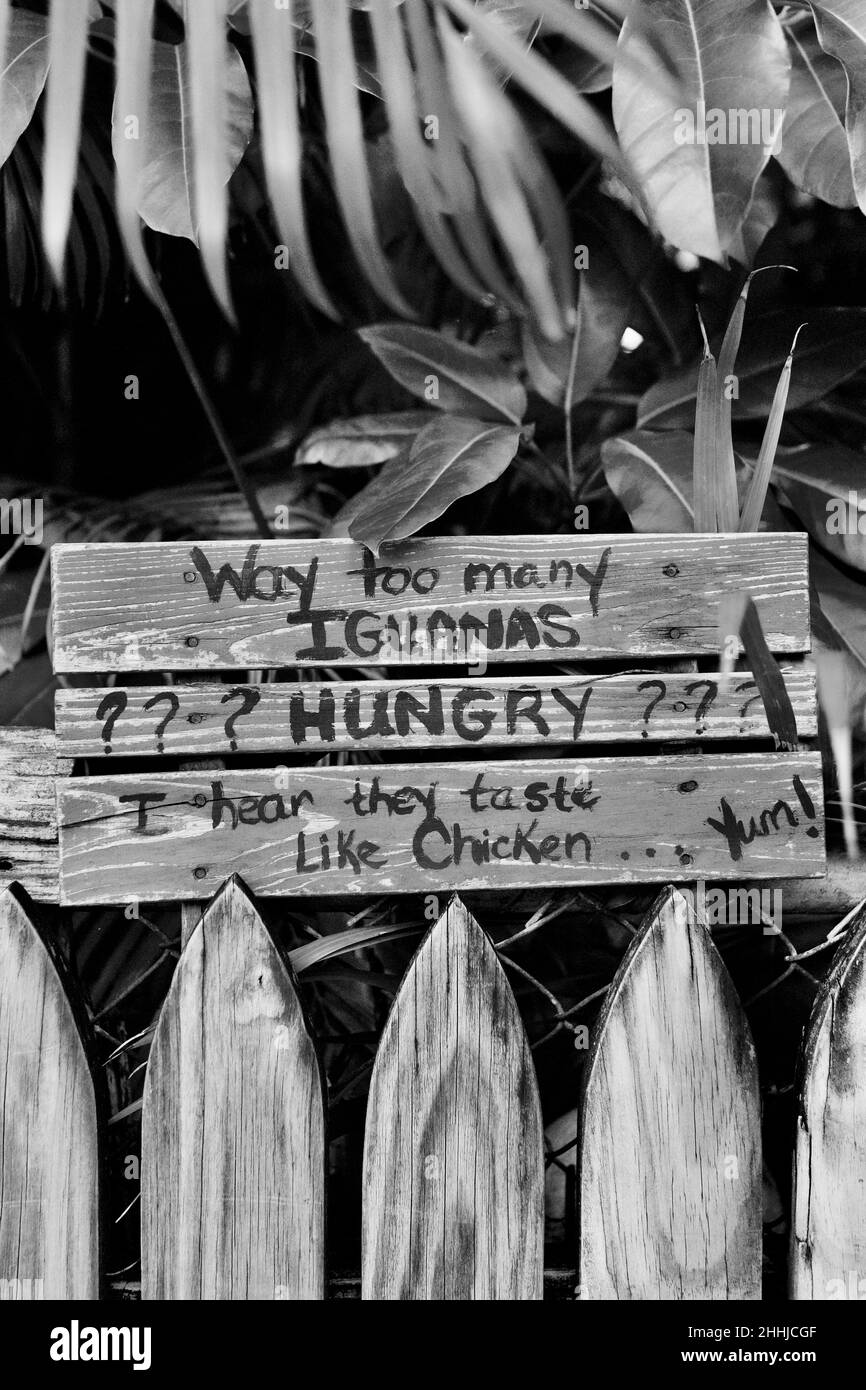 Way too many
IGUANAS
??? HUNGRY ???
I hear they taste
Like Chicken .... Yum!
alamy
Image ID: 2HHJCGF
www.alamy.com